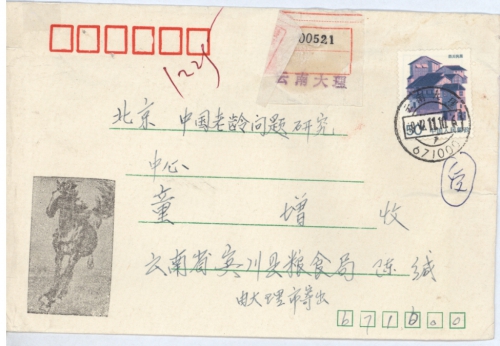 00521
云南大理
北京 中国老龄问题研究
中心
童 增 收
云南省宾川县粮食局 陈斌
由大理市寄出
671000
671000